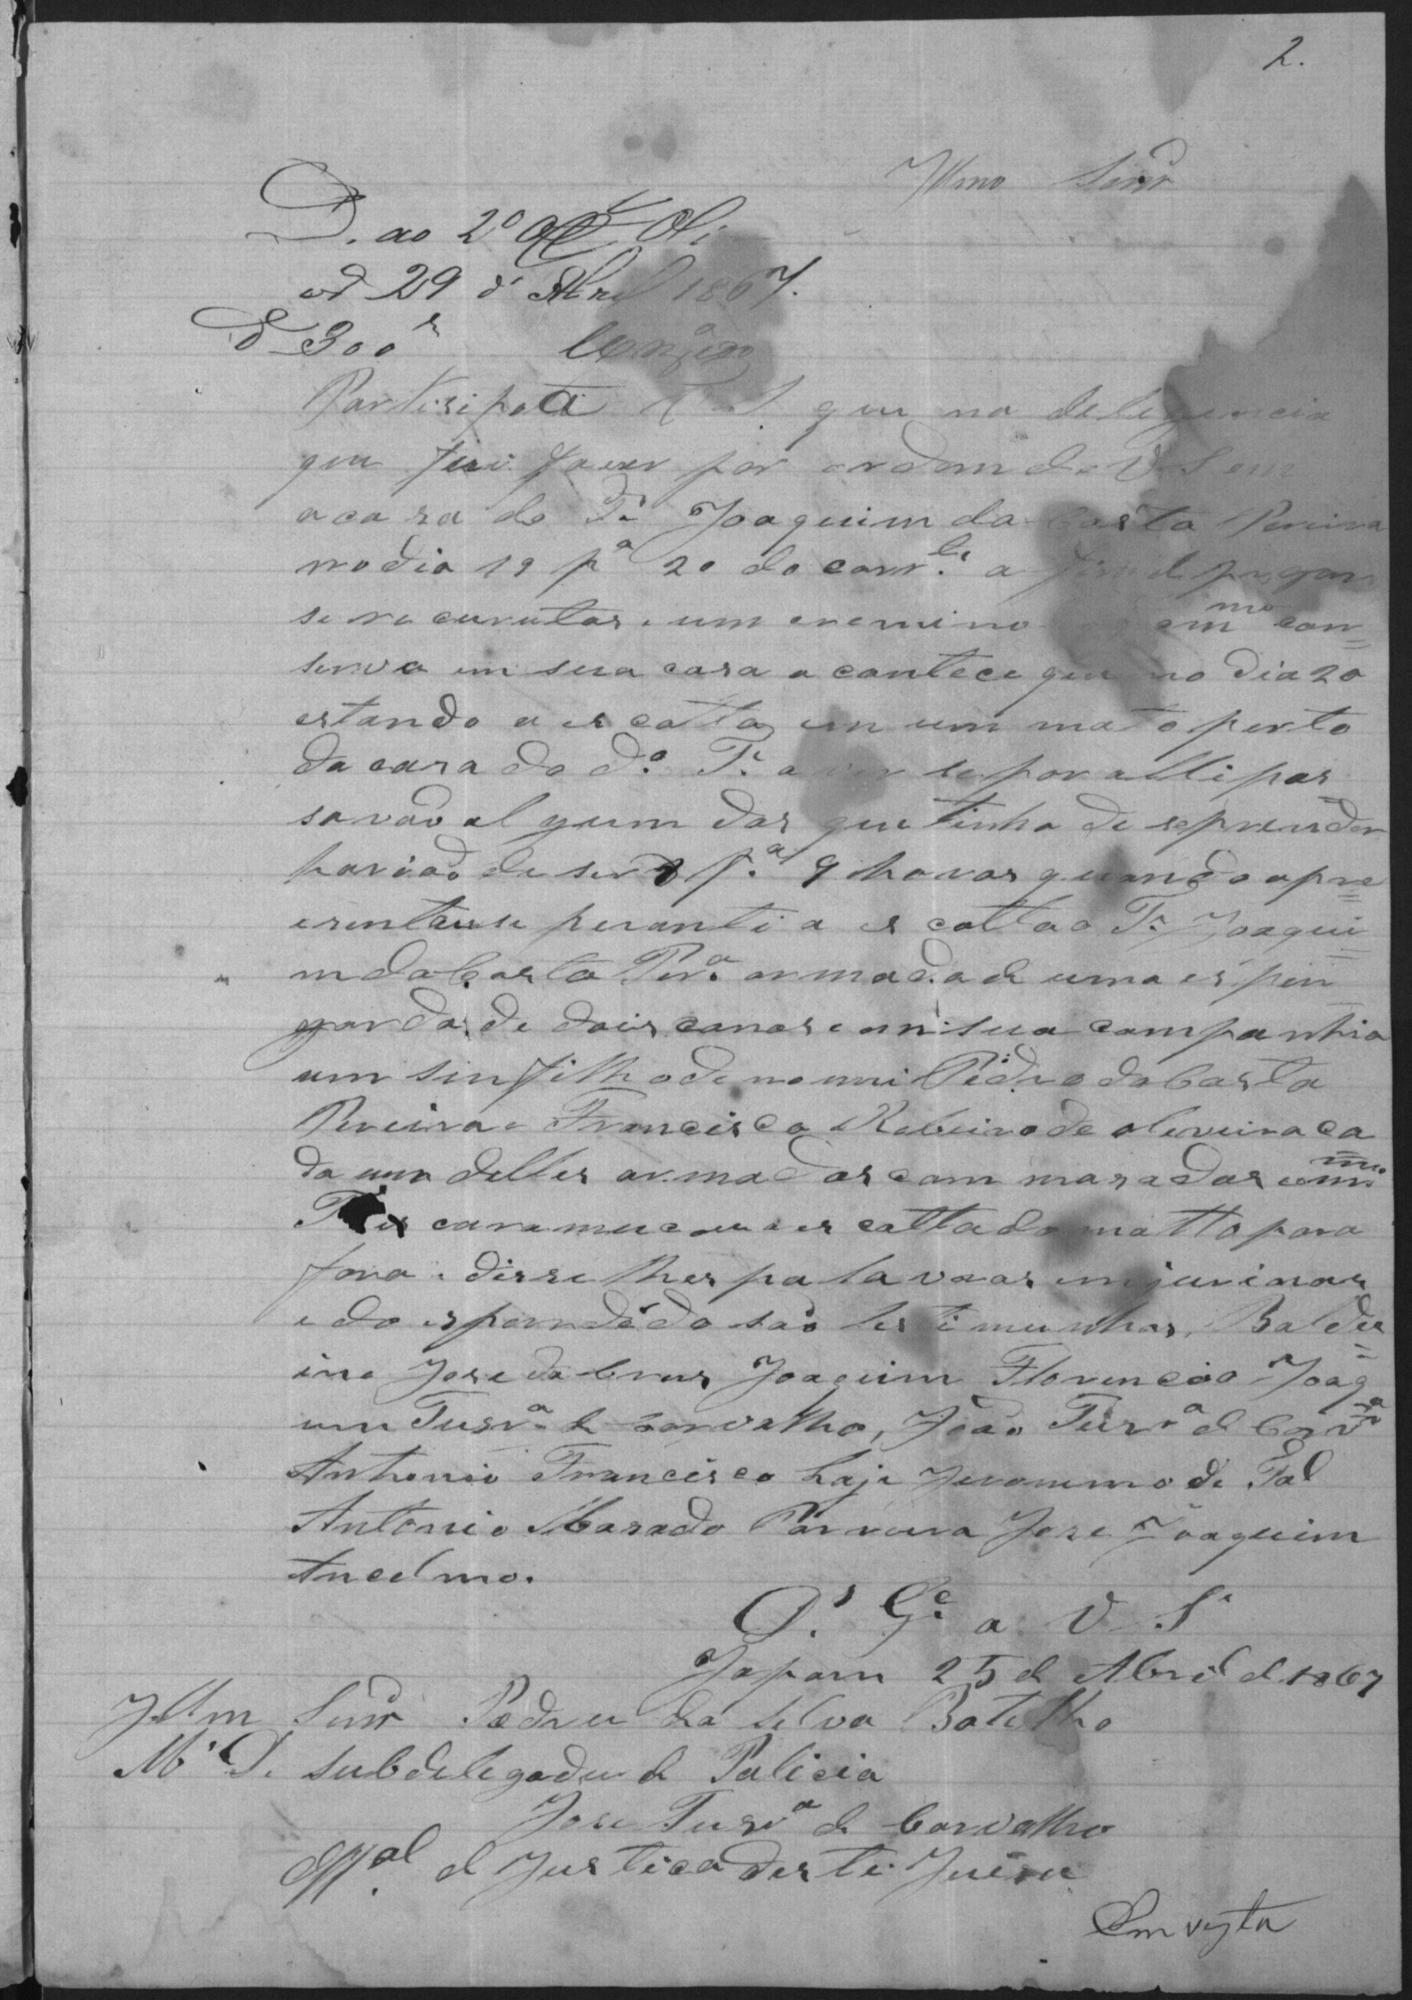 2.
Illmo Senr
D. ao 2º
29 d' Abril 1867.
D 300 rs
Partisipo a V. S. que na deligencia
que fui faser por ordem de V. S. em
a casa do Te Joaquim da Costa Pereira
no dia 19 pª 20 do corr.te a fim de pegar
se recurutas e um creminoso cõn
serva em sua casa acontece que no dia 20
estando a escolta em um mato perto
da casa do dº Te a ver se por alli pas
savão algum dos que tinha de se prender
harião de ser 8 p.ª 9 horas quando apre
esentouse peranti a escolta o Te Joaqui
m da Costa Per.ª armado de uma espin
garda de dois canos e em sua companhia
um seu filho de nomi Pedro da Costa
Pereira e Francisco Rebeiro de oleveira ca
da um delles armados com
Te escaramucou a escolta do matto para
fora e disse lhes palavras injurioas
e do espendido são testimunhas, Balde
ino Jose da Crus Joaquim Florencio Joaq
uim Tusrª de Carvalho, João Tusrª d Carvº
Antonio Francisco Laje Jeronimo de Tal
Antonio Masado Parreira Jose Joaquim
Ancelmo.
D.s G.e a V. S.
Japam 25 d Abril d 1867
Illm Senr Pedru da Silva Botelho
M. D. subdelegadu d Policia
Jose Tusrª d Carvalho
Offal d Justica desti Juizu